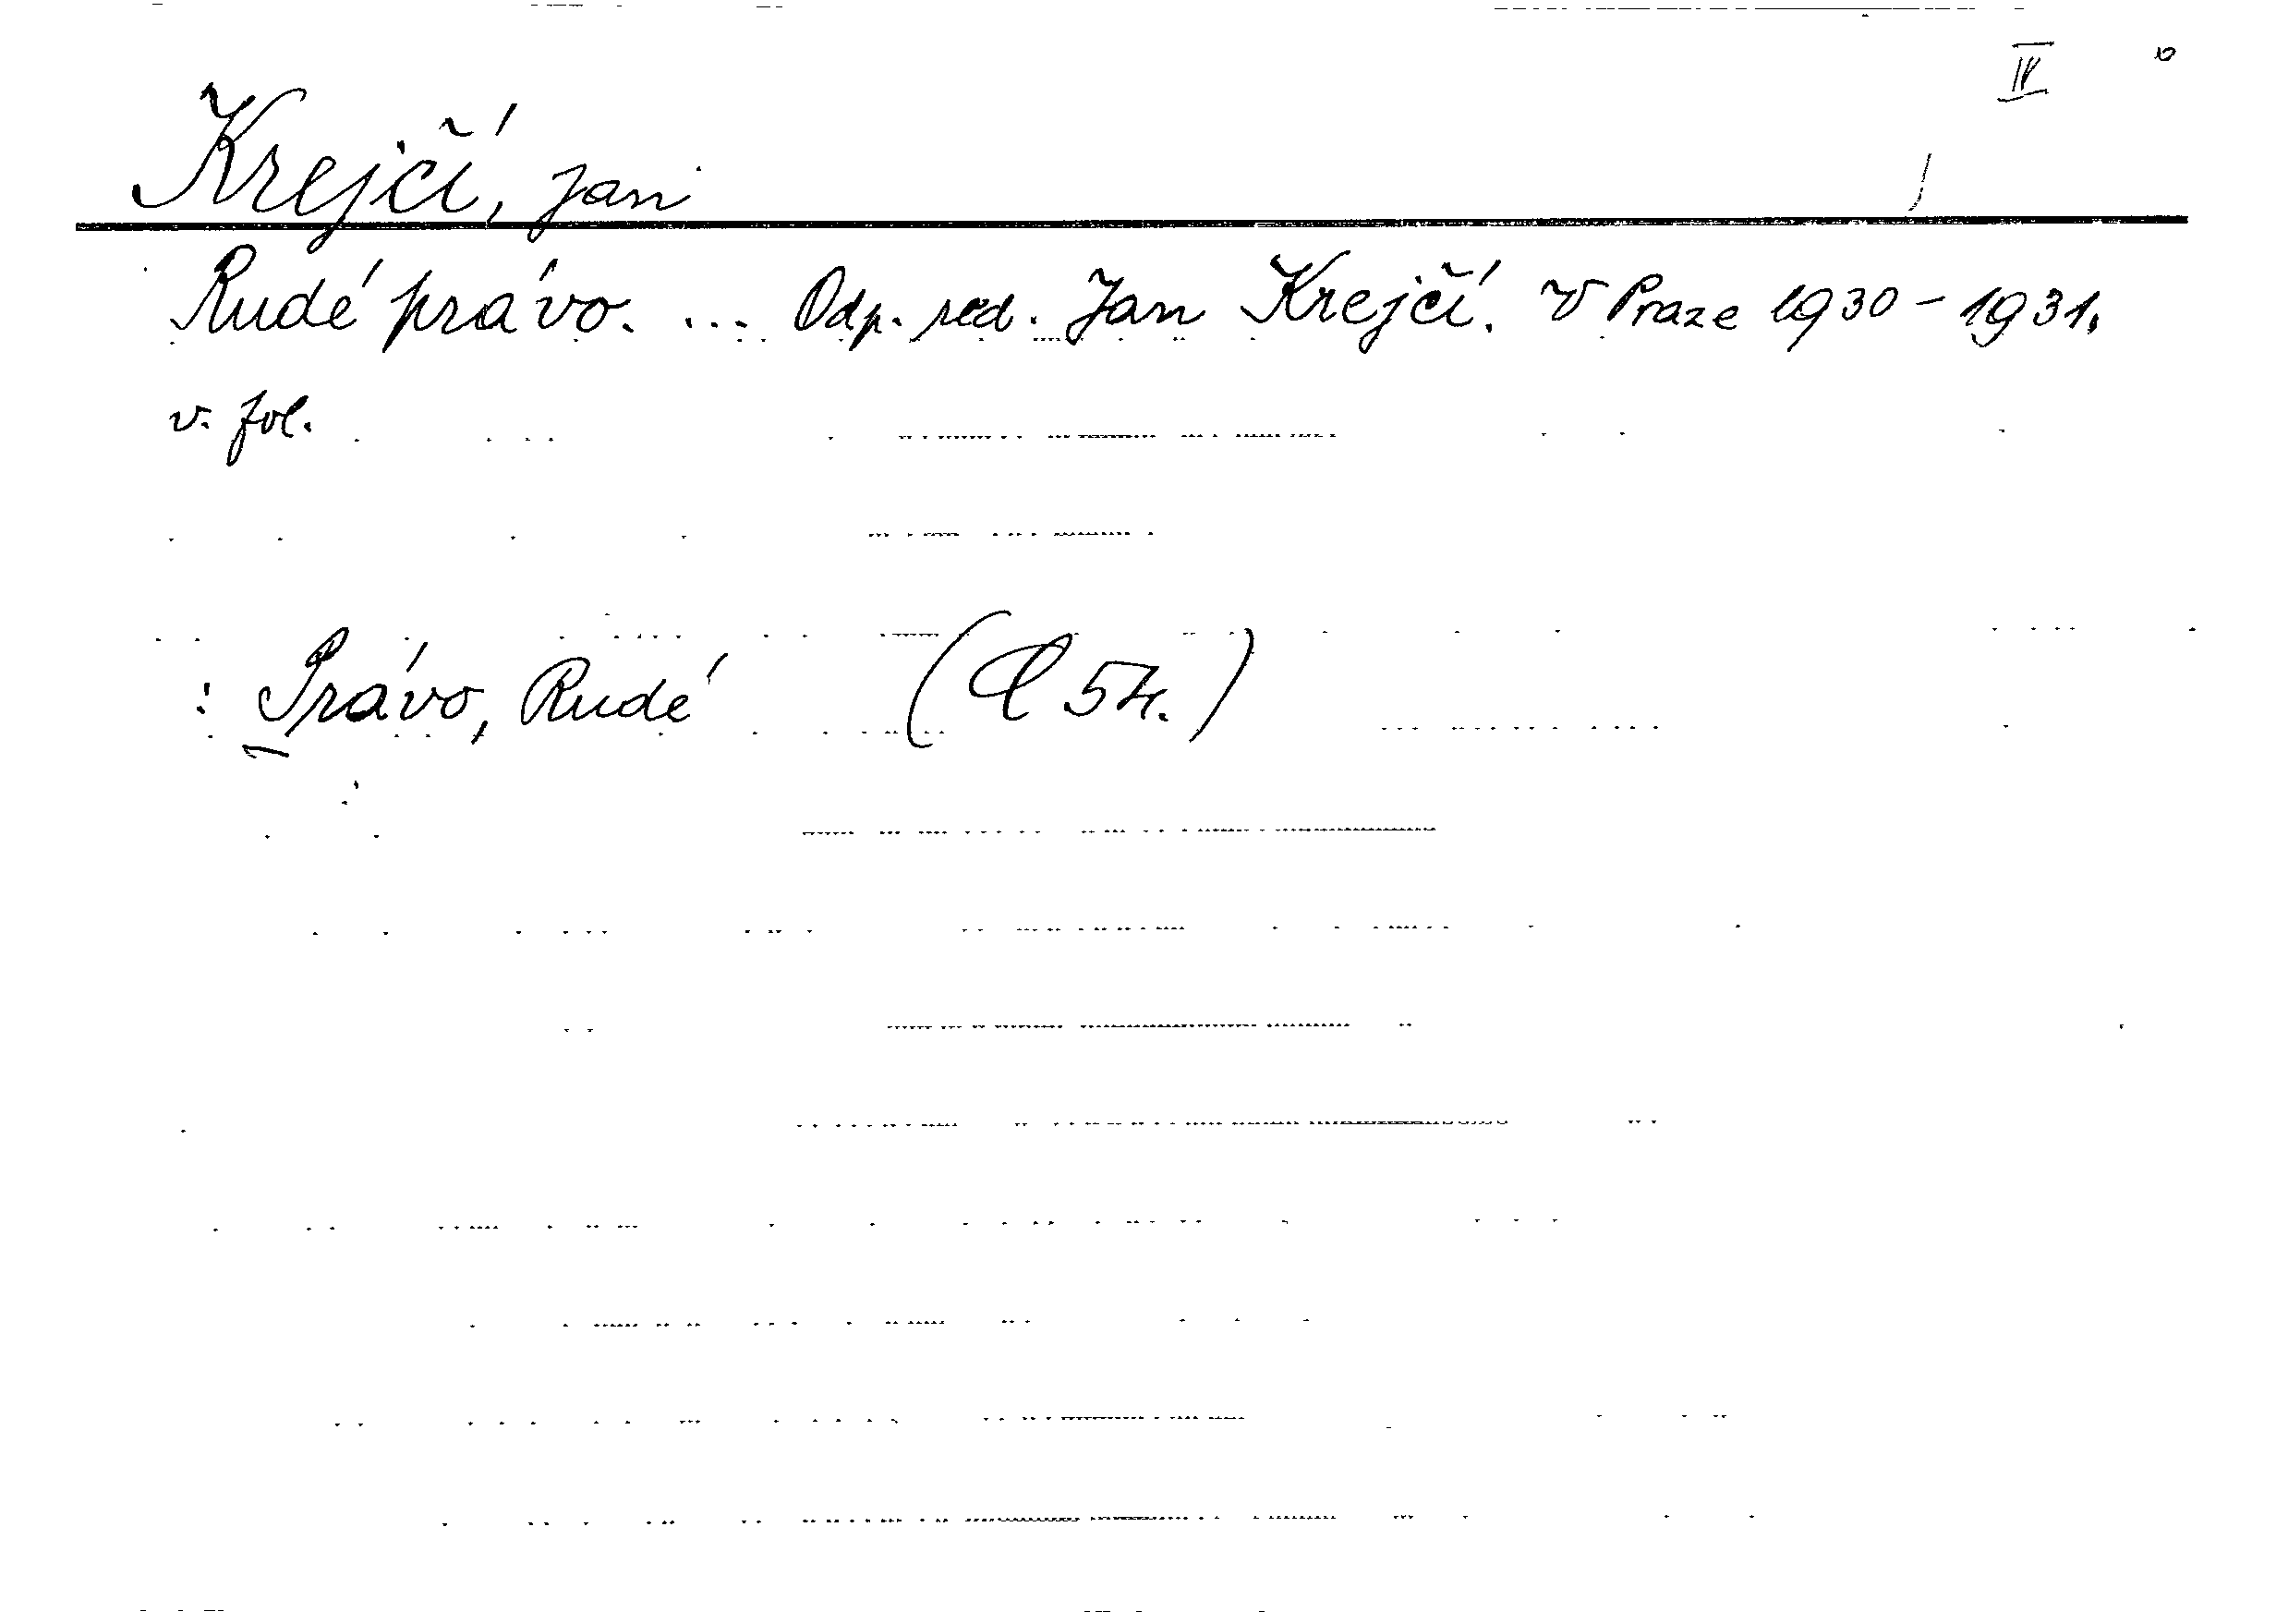 IV
Krejčí, Jan
Rudé právo. ... Odp. red. Jan Krejčí. V Praze 1930-1931.
v. fol.
: Právo, Rudé (C 54.)